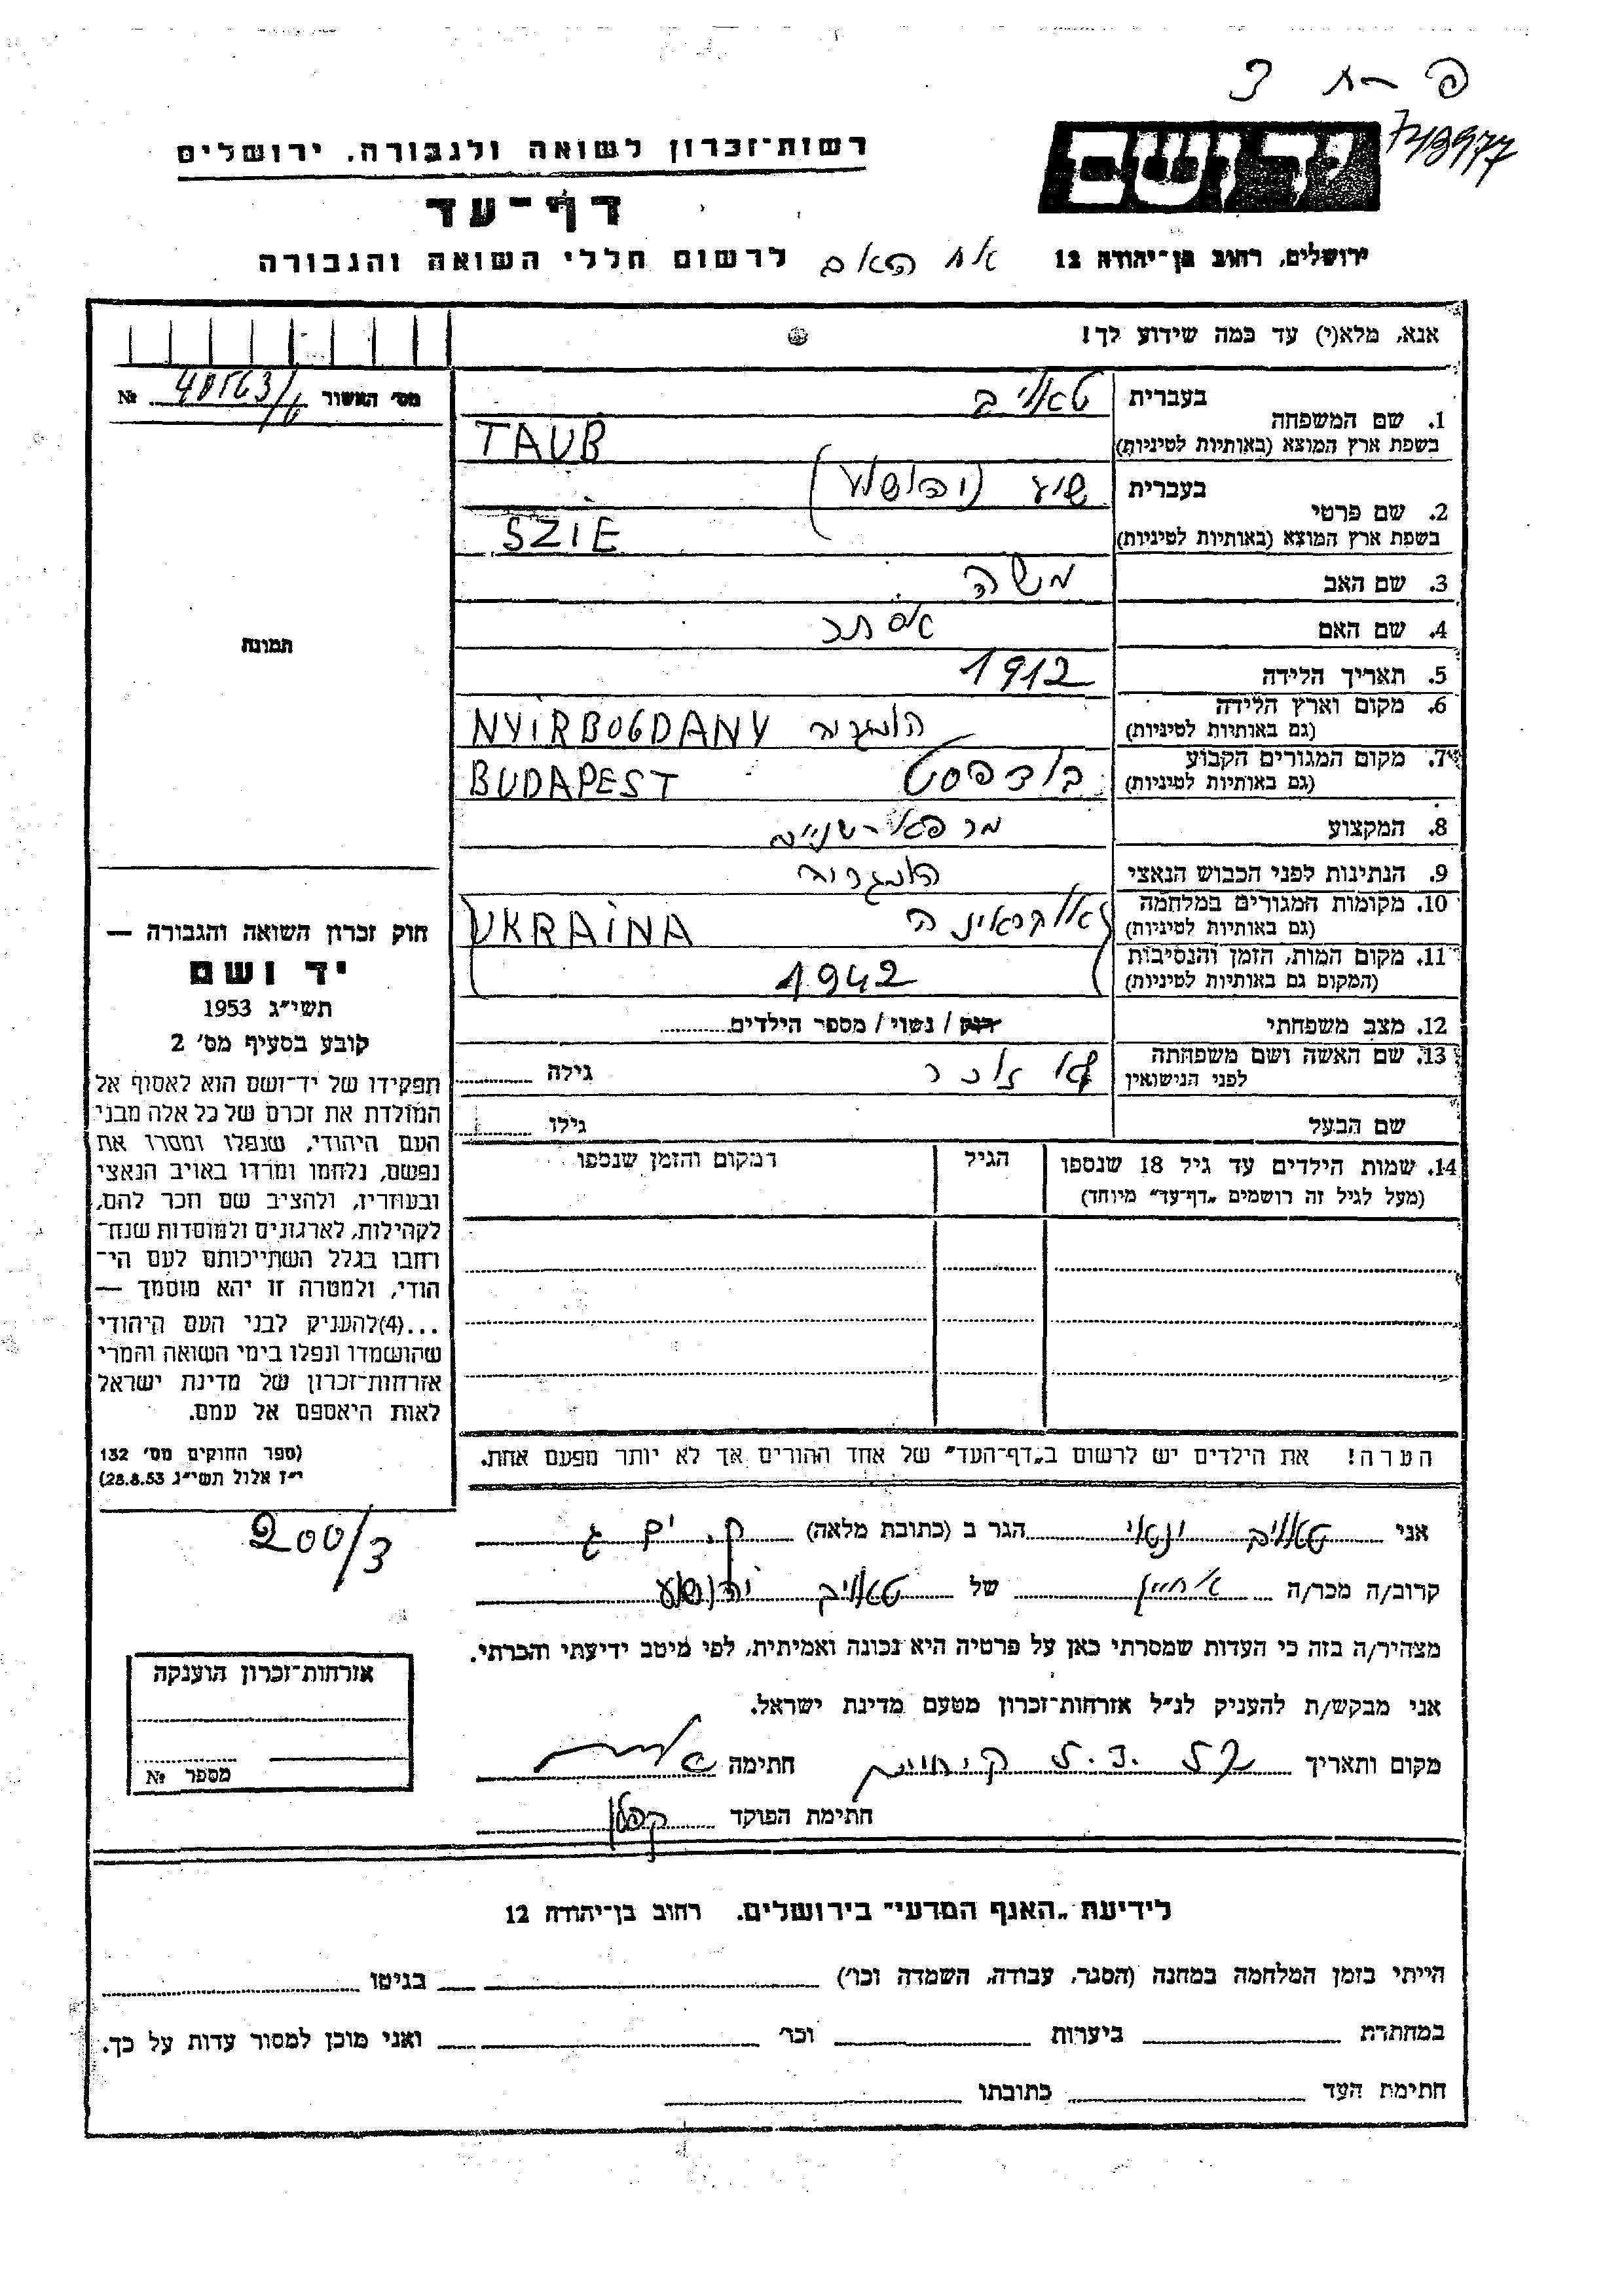 743977
רשות־זכרון לשואה ולגבורה, ירושלים
דף־עד
ירושלים, רחוב בן־יהודה 12
אח האב
לרשום חללי השואה והגבורה
אנא, מלא(י) עד כמה שידוע לך!
מס׳ האשור №
1. שם המשפחה
בעברית טאוב
בשפת ארץ המוצא (באותיות לטיניות) TAUB
2. שם פרטי
בעברית שיע (יהושע)
בשפת ארץ המוצא (באותיות לטיניות) SZIE
3. שם האב משה
4. שם האם אסתר
5. תאריך הלידה 1912
6. מקום וארץ הלידה
(גם באותיות לטיניות) הונגריה NYIRBOGDANY
7. מקום המגורים הקבוע
(גם באותיות לטיניות) בודפסט BUDAPEST
8. המקצוע מרפא-שניים
9. הנתינות לפני הכבוש הנאצי הונגריה
10. מקומות המגורים במלחמה
(גם באותיות לטיניות) אוקראינה UKRAINA
11. מקום המות, הזמן והנסיבות
(המקום גם באותיות לטיניות) 1942
12. מצב משפחתי רוק / נשוי / מספר הילדים
13. שם האשה ושם משפחתה
לפני הנישואין לא זוכר גילה
שם הבעל גילו
14. שמות הילדים עד גיל 18 שנספו
(מעל לגיל זה רושמים „דף־עד״ מיוחד)
הגיל
המקום והזמן שנספו
תמונה
חוק זכרון השואה והגבורה —
יד ושם
תשי״ג 1953
קובע בסעיף מס׳ 2
תפקידו של יד־ושם הוא לאסוף אל
המולדת את זכרם של כל אלה מבני
העם היהודי, שנפלו ומסרו את
נפשם, נלחמו ומרדו באויב הנאצי
ובעוזריו, ולהציב שם וזכר להם,
לקהילות, לארגונים ולמוסדות שנח־
רבו בגלל השתייכותם לעם הי־
הודי, ולמטרה זו יהא מוסמך —
...(4)להעניק לבני העם היהודי
שהושמדו ונפלו בימי השואה והמרי
אזרחות־זכרון של מדינת ישראל
לאות היאספם אל עמם.
(ספר החוקים מס׳ 132
י״ז אלול תשי״ג 28.8.53)
הערה! את הילדים יש לרשום ב„דף־העד״ של אחד ההורים אך לא יותר מפעם אחת.
200/3
אני טאוב הגר ב (כתובת מלאה) ק. ים ג
קרוב/ה מכר/ה אחיין של טאוב יהושע
מצהיר/ה בזה כי העדות שמסרתי כאן על פרטיה היא נכונה ואמיתית, לפי מיטב ידיעתי והכרתי.
אני מבקש/ת להעניק לנ״ל אזרחות־זכרון מטעם מדינת ישראל.
מקום ותאריך חתימה
חתימת הפוקד קפלן
אזרחות־זכרון הוענקה
מספר №
לידיעת „האגף המדעי״ בירושלים, רחוב בן־יהודה 12
הייתי בזמן המלחמה במחנה (הסגר, עבודה, השמדה וכו׳) בגיטו
במחתרת ביערות וכו׳ ואני מוכן למסור עדות על כך.
חתימת העד כתובתו